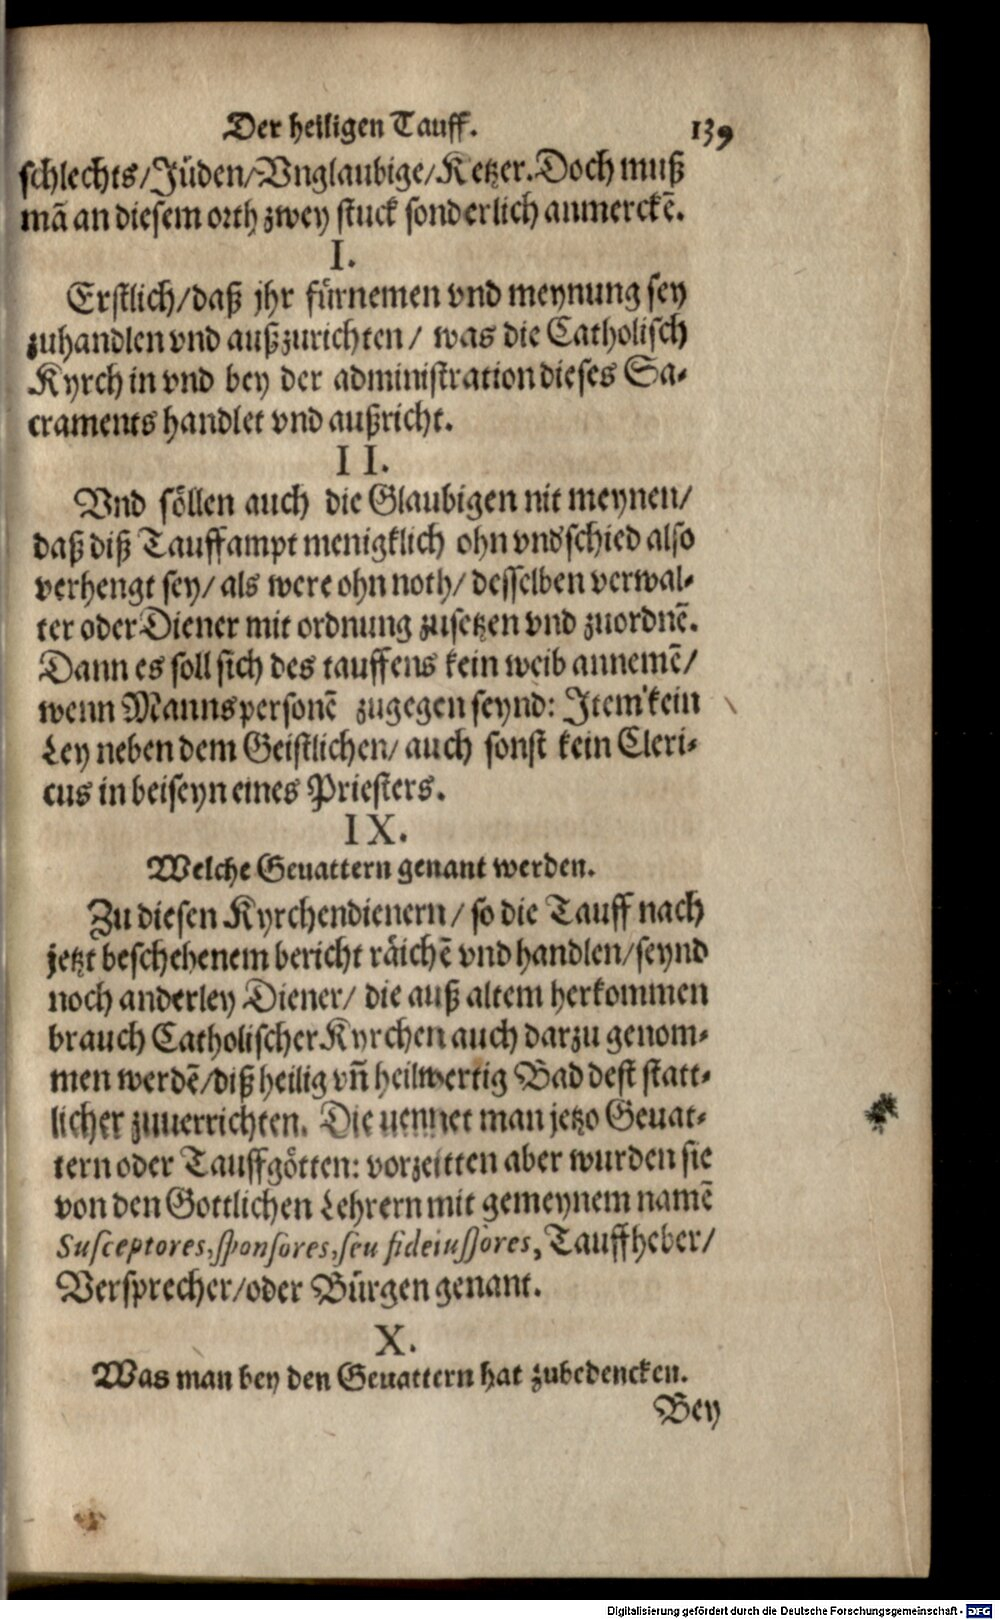 Der heiligen Tauff. 139
schlechts/Jüden/Vnglaubige/Ketzer. Doch muß
mã an diesem orth zwey stuck sonderlich anmerckẽ.
I.
Erstlich/daß jhr fürnemen vnd meynung sey
zuhandlen vnd außzurichten/ was die Catholisch
Kyrch in vnd bey der administration dieses Sa-
craments handlet vnd außricht.
II.
Vnd söllen auch die Glaubigen nit meynen/
daß diß Tauffampt menigklich ohn vndschied also
verhengt sey/ als were ohn noth/ desselben verwal-
ter oder Diener mit ordnung zusetzen vnd zuordnẽ.
Dann es soll sich des tauffens kein weib annemẽ/
wenn Mannspersonẽ zugegen seynd: Item kein
Ley neben dem Geistlichen/ auch sonst kein Cleri-
cus in beiseyn eines Priesters.
IX.
Welche Geuattern genant werden.
Zu diesen Kyrchendienern/ so die Tauff nach
jetzt beschehenem bericht räichẽ vnd handlen/seynd
noch anderley Diener/ die auß altem herkommen
brauch Catholischer Kyrchen auch darzu genom-
men werdẽ/diß heilig vñ heilwertig Bad dest statt-
licher zuuerrichten. Die nennet man jetzo Geuat-
tern oder Tauffgötten: vorzeitten aber wurden sie
von den Gottlichen Lehrern mit gemeynem namẽ
Susceptores, sponsores, seu fideiussores, Tauffheber/
Versprecher/oder Bürgen genant.
X.
Was man bey den Geuattern hat zubedencken.
Bey
Digitalisierung gefördert durch die Deutsche Forschungsgemeinschaft - DFG